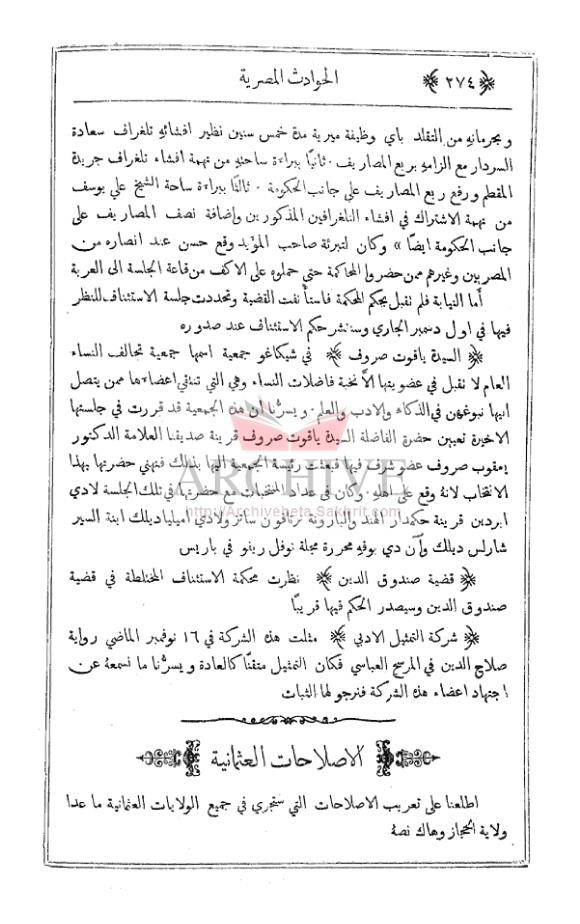 ﴿ ٢٧٤ ﴾ الحوادث المصرية
وبجرمانهِ من التقلد باي وظيفة ميرية مدة خمس سنين نظير افشائهِ تلغراف سعادة
السردار مع الزامهِ بربع المصاريف . ثانيًا ببراءة ساحتهِ من تهمة افشاء تلغراف جريدة
المقطم ورفع ربع المصاريف على جانب الحكومة . ثالثًا ببراءة ساحة الشيخ علي يوسف
من تهمة الاشتراك في افشاء التلغرافين المذكورين وإضافة نصف المصاريف على
جانب الحكومة ايضًا » وكان لتبرئة صاحب المؤيد وقع حسن عند انصاره من
المصريين وغيرهم ممن حضروا المحاكمة حتى حملوه على الاكف من قاعة الجلسة الى العربة
أما النيابة فلم تقبل بحكم المحكمة فاستأنفت القضية وتحددت جلسة الاستئناف للنظر
فيها في اول دسمبر الجاري وسننشر حكم الاستئناف عند صدوره
﴿ السيدة ياقوت صروف ﴾ في شيكاغو جمعية اسمها جمعية تحالف النساء
العام لا تقبل في عضويتها الاَّ نخبة فاضلات النساء وهي التي تنتقي اعضاءها ممن يتصل
ايها نبوغهن في الذكاء والادب والعلم . ويسرُّنا ان هذه الجمعية قد قررت في جلستها
الاخيرة تعيين حضرة الفاضلة السيدة ياقوت صروف قرينة صديقنا العلامة الدكتور
يعقوب صروف عضو شرف فيها فبعثت رئيسة الجمعية اليها بذلك فنهني حضرتها بهذا
الانتخاب لانهُ وقع على اهلهِ . وكان في عداد المنتخبات مع حضرتها في تلك الجلسة لادي
ابردين قرينة حكمدار الهند والبارونة ترتاقون ساتنر ولادي اميليا ديلك ابنة السير
شارلس ديلك وآن دي بوفه محررة مجلة نوفل رينو في باريس
﴿ قضية صندوق الدين ﴾ نظرت محكمة الاستئناف المختلطة في قضية
صندوق الدين وسيصدر الحكم فيها قريبًا
﴿ شركة التمثيل الادبي ﴾ مثلت هذه الشركة في ١٦ نوفمبر الماضي رواية
صلاح الدين في المرسح العباسي فكان التمثيل متقنًا كالعادة ويسرُّنا ما نسمعهُ عن
اجتهاد اعضاء هذه الشركة فنرجو لها الثبات
الاصلاحات العثمانية
اطلعنا على تعريب الاصلاحات التي ستجري في جميع الولايات العثمانية ما عدا
ولاية الحجاز وهاك نصهُ
ARCHIVE
http://Archivebeta.Sakhrit.com